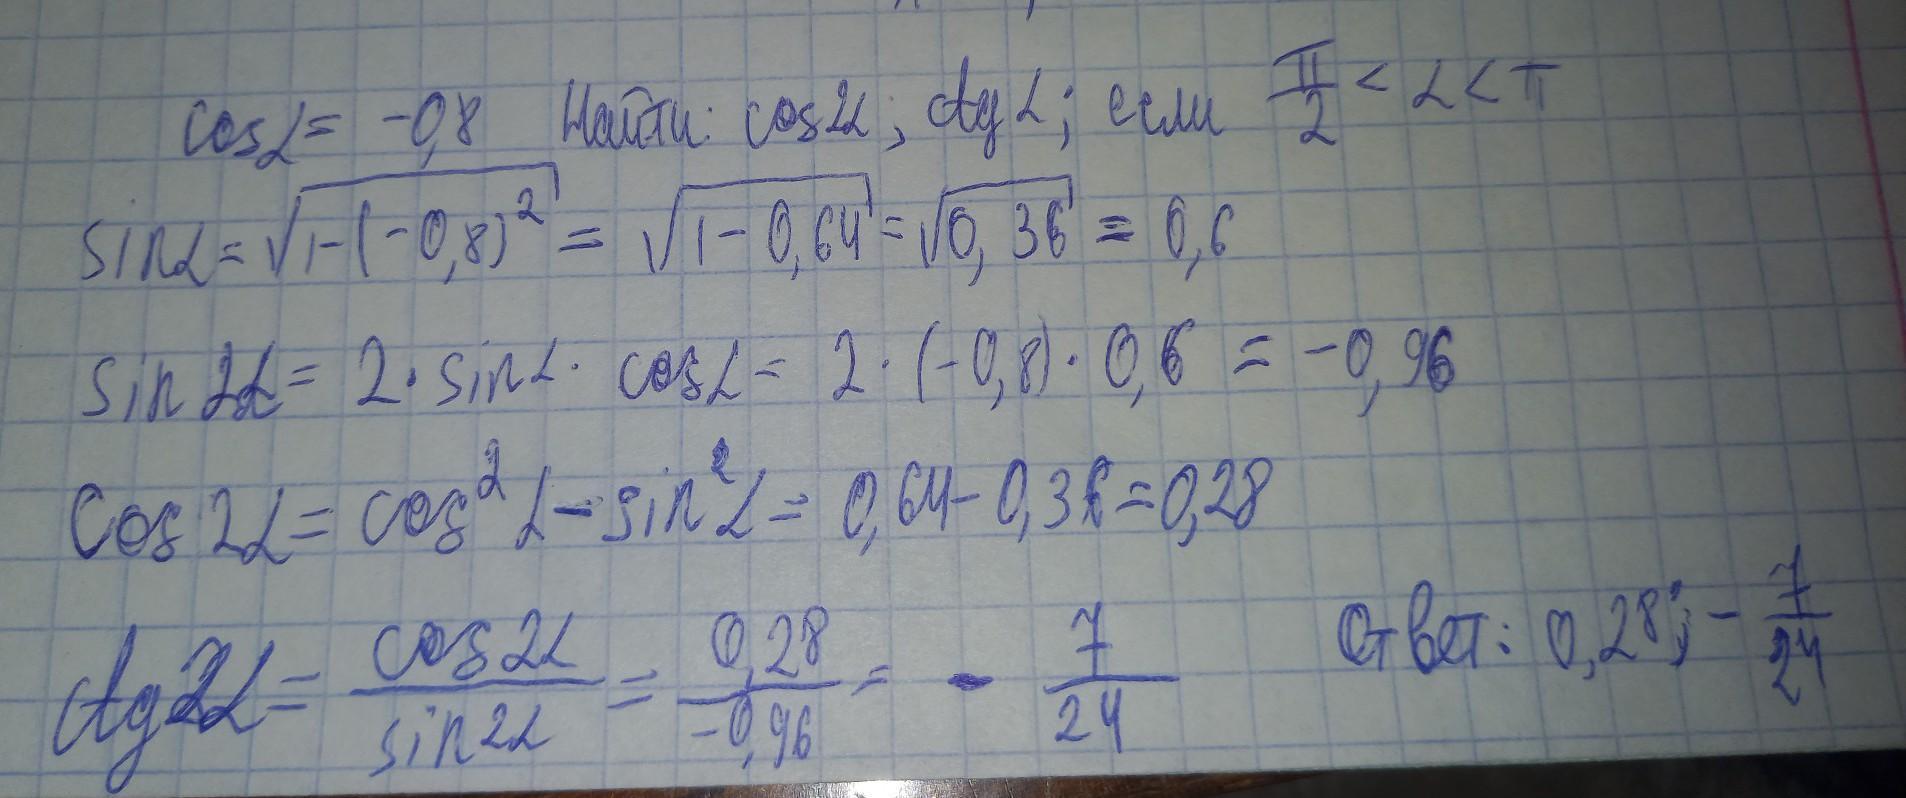 cosα = -0,8 Найти: cos2α; ctgα; если π/2 < α < π
sinα = √(1-(-0,8)²) = √(1-0,64) = √(0,36) = 0,6
sin2α = 2·sinα·cosα = 2·(-0,8)·0,6 = -0,96
cos2α = cos²α - sin²α = 0,64 - 0,36 = 0,28
ctg2α = cos2α/sin2α = 0,28/-0,96 = - 7/24 Ответ: 0,28; - 7/24